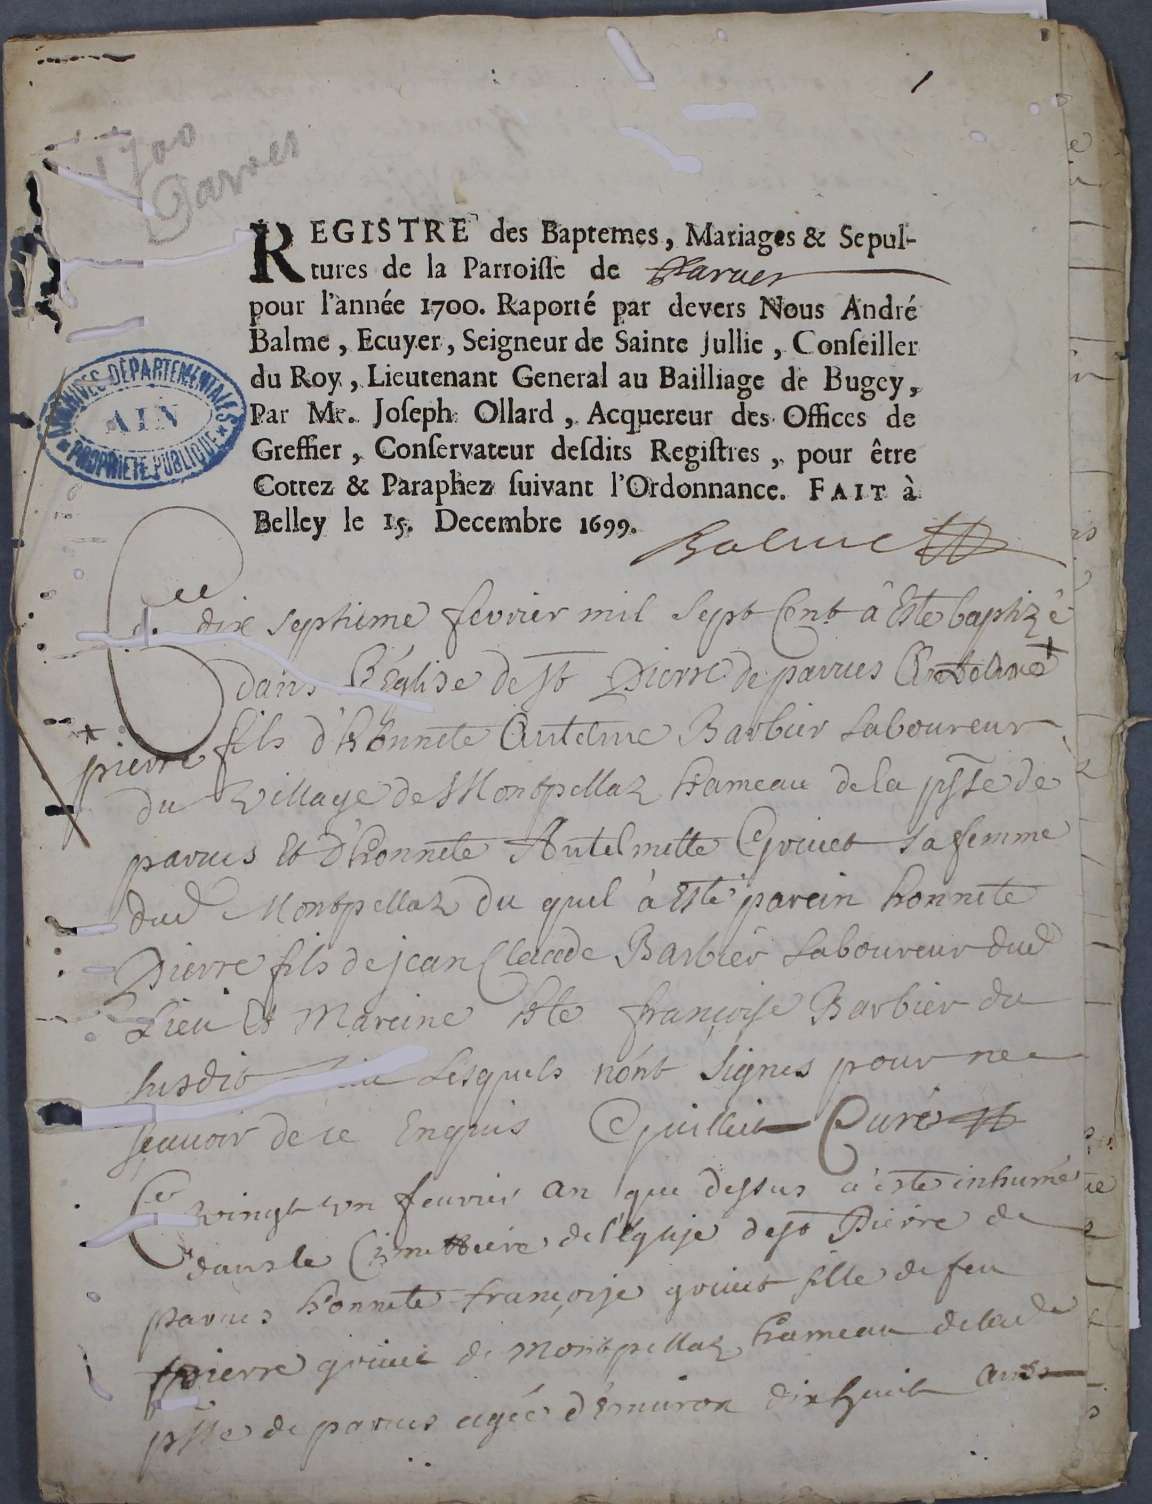 1
1700
Parves
REGISTRE des Baptemes, Mariages & Sepul-
tures de la Parroisse de Parves
pour l'année 1700. Raporté par devers Nous André
Balme, Ecuyer, Seigneur de Sainte Jullie, Conseiller
du Roy, Lieutenant General au Bailliage de Bugey,
Par Me. Joseph Ollard, Acquereur des Offices de
Greffier, Conservateur desdits Registres, pour être
Cottez & Paraphez suivant l'Ordonnance. FAIT à
Belley le 15. Decembre 1699.
ARCHIVES DÉPARTEMENTALES
AIN
PROPRIÉTÉ PUBLIQUE
Balme
Ce dix septieme fevrier mil sept Cent à Esté baptizé
dans l'Eglise de st Pierre de parves
pierre fils d'honnete Antelme Barbier Laboureur
du village de Montpellaz hameau de la psse de
parves Et D'honnete Antelmette Grivet sa femme
dud Montpellaz du quel à Esté parein honnete
Pierre fils de jean Claude Barbier Laboureur dud
Lieu Et Mareine hte françoise Barbier du
susdit lieu Lesquels nònt signes pour ne
sçavoir de ce Enquis Guillet Curé
Ce vingt un feuvrier an que dessus à esté inhumé
dans le Cimettiere de l'Eglise de st Pierre de
parves honnete françoise grivet fille de feu
pierre grivet de Montpellaz hameau de lade
psse de parves agée d'environ dix huit ans